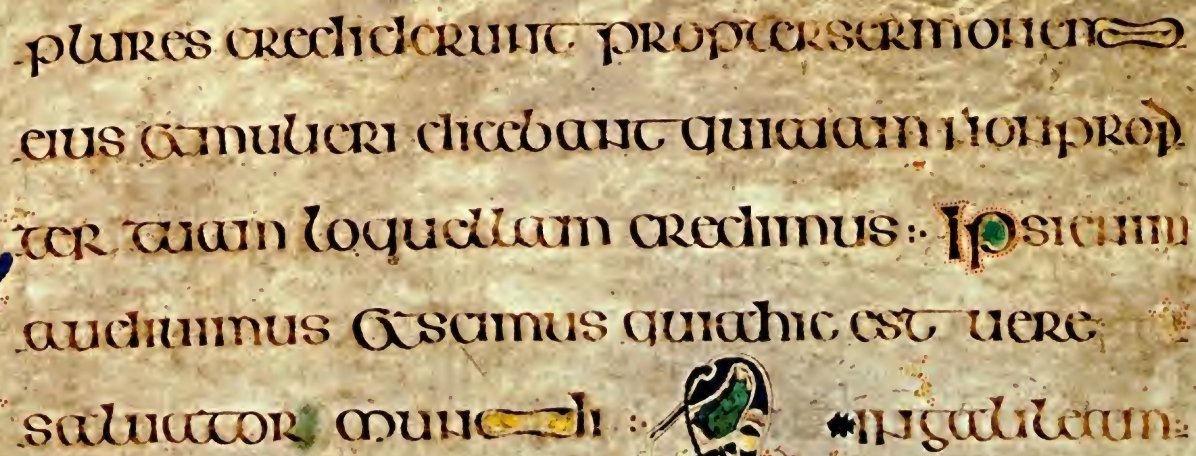 plures crediderunt propter sermonem
eius et mulieri dicebant quia iam non prop
ter tuam loquellam credimus :· Ipsi enim
audiuimus et scimus quia hic est uere
saluator mundi :· in galileam :·